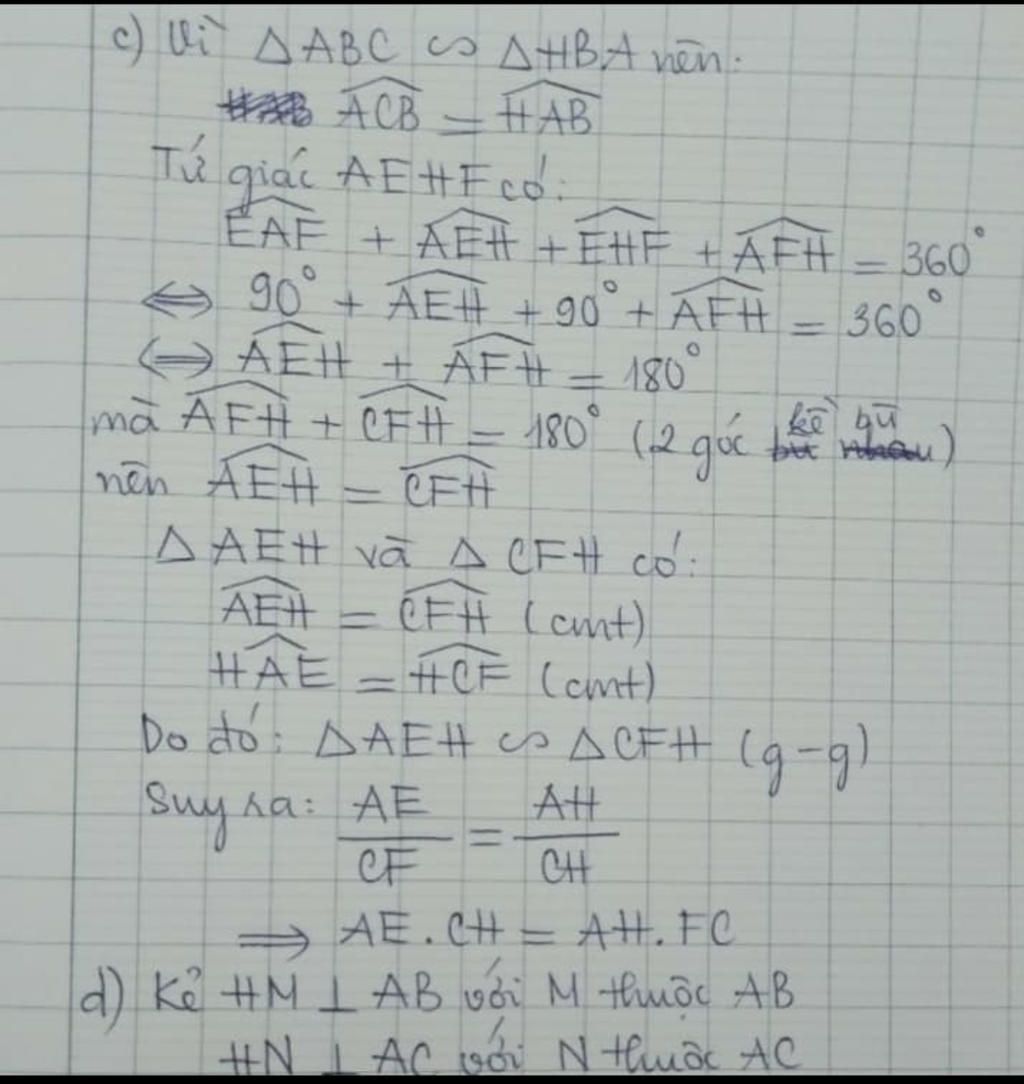 c) Vì △ABC ∽ △HBA nên:
ACB = HAB
Tứ giác AEHF có:
EAF + AEH + EHF + AFH = 360°
⟺ 90° + AEH + 90° + AFH = 360°
⟺ AEH + AFH = 180°
mà AFH + CFH = 180° (2 góc kề bù)
nên AEH = CFH
△AEH và △CFH có:
AEH = CFH (cmt)
HAE = HCF (cmt)
Do đó: △AEH ∽ △CFH (g-g)
Suy ra: AE/CF = AH/CH
⟹ AE.CH = AH.FC
d) Kẻ HM ⊥ AB với M thuộc AB
HN ⊥ AC với N thuộc AC